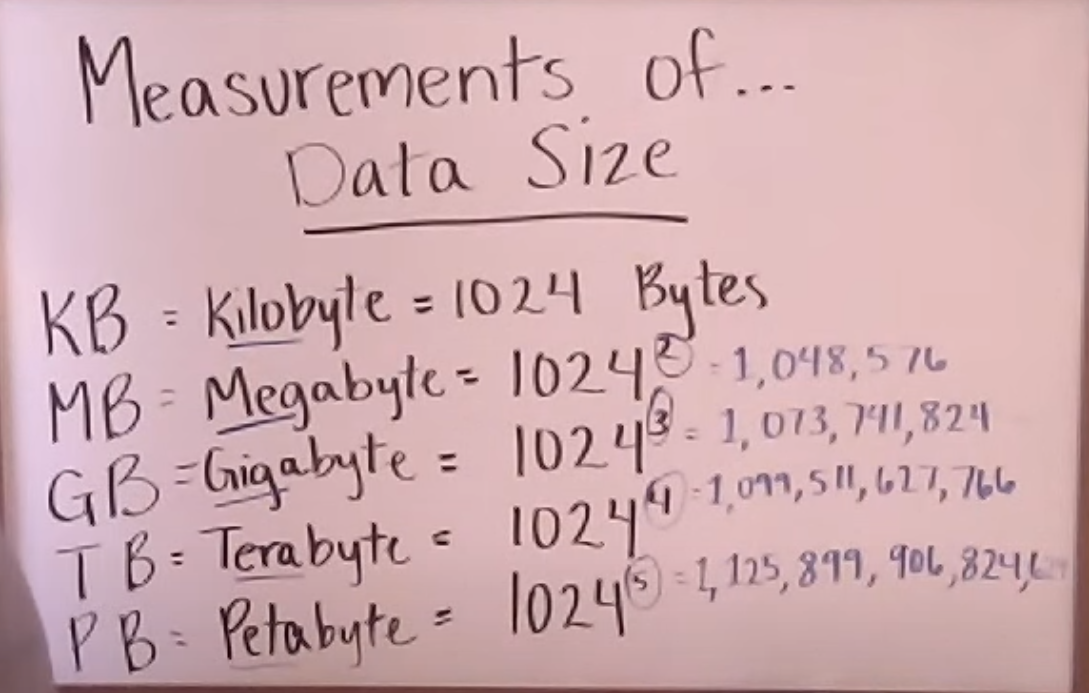 Measurements of...
Data Size
KB = Kilobyte = 1024 Bytes
MB = Megabyte = 1024² = 1,048,576
GB = Gigabyte = 1024³ = 1,073,741,824
TB = Terabyte = 1024⁴ = 1,099,511,627,766
PB = Petabyte = 1024⁵ = 1,125,899,906,824,6